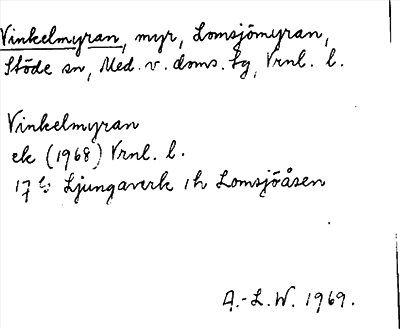 Vinkelmyran, myr, Lomsjömyran,
Stöde sn, Med. v. doms. tg, Vrnl. l.
Vinkelmyran
ek (1968) Vrnl. l.
17 Ljungaverk 1h Lomsjöåsen
A.-L.W. 1969.